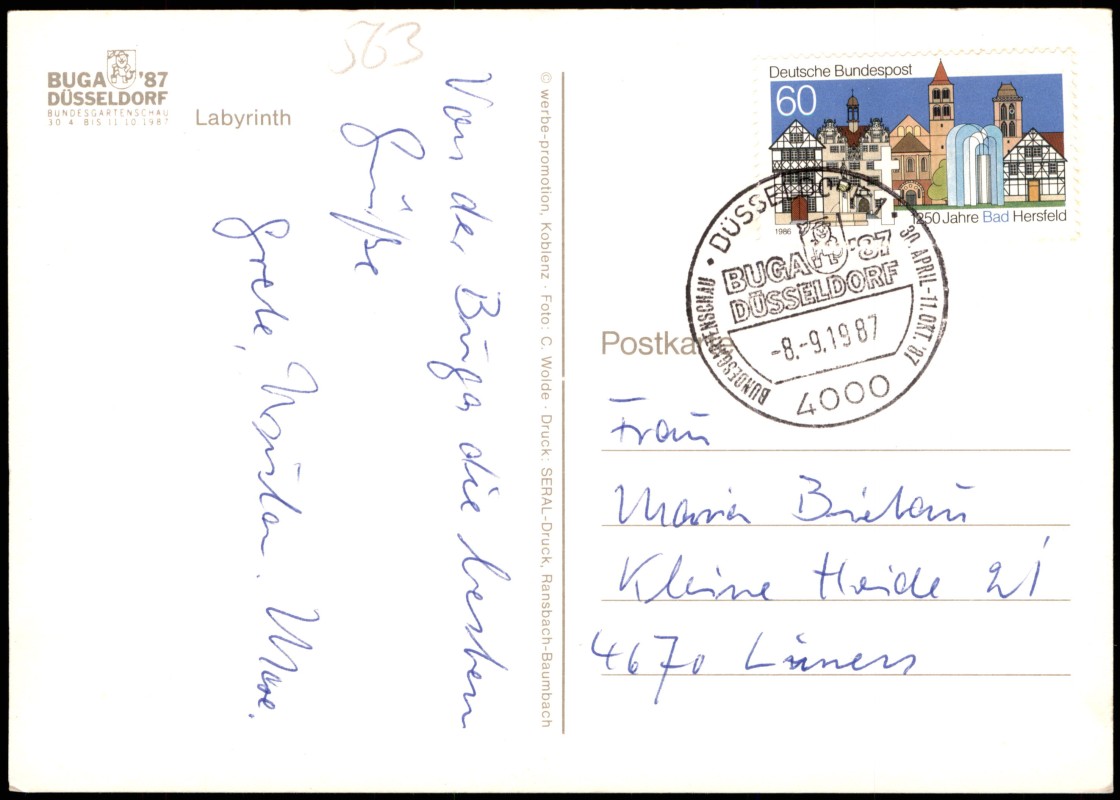 563
BUGA '87
DÜSSELDORF
BUNDESGARTENSCHAU
30.4. BIS 11.10.1987
Labyrinth
Von der Buga die besten
Grüße
Grete,
© werbe-promotion, Koblenz · Foto: C. Wolde · Druck: SERAL-Druck, Ransbach-Baumbach
Deutsche Bundespost
60
1986
1250 Jahre Bad Hersfeld
DÜSSELDORF
30. APRIL-11. OKT. '87
BUNDESGARTENSCHAU
BUGA '87
DÜSSELDORF
-8.-9.1987
4000
Postkarte
Frau
Maria
Kleine Heide 21
4670 Lünen